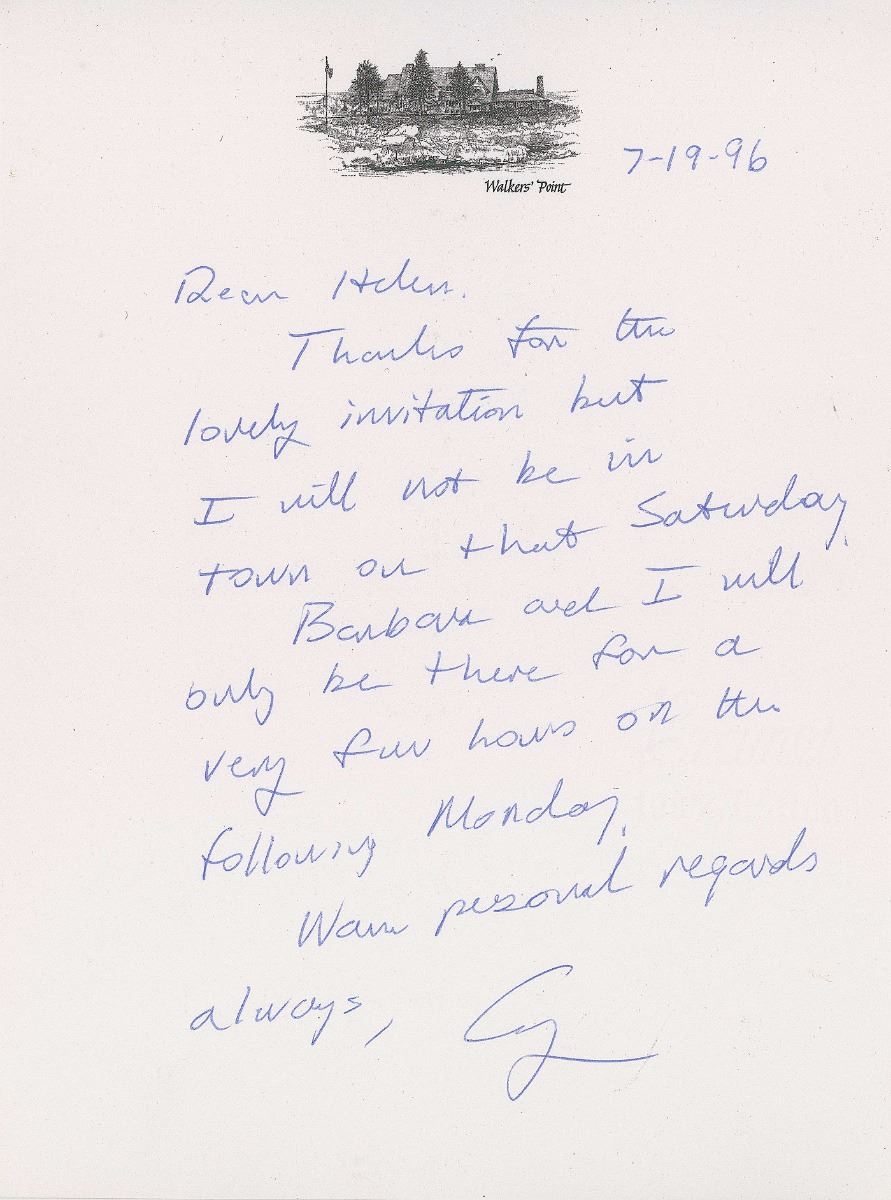 Walkers' Point
7-19-96
Dear Helen.
Thanks for the
lovely invitation but
I will not be in
town on that Saturday.
Barbara and I will
only be there for a
very few hours on the
following Monday.
Warm personal regards
always,